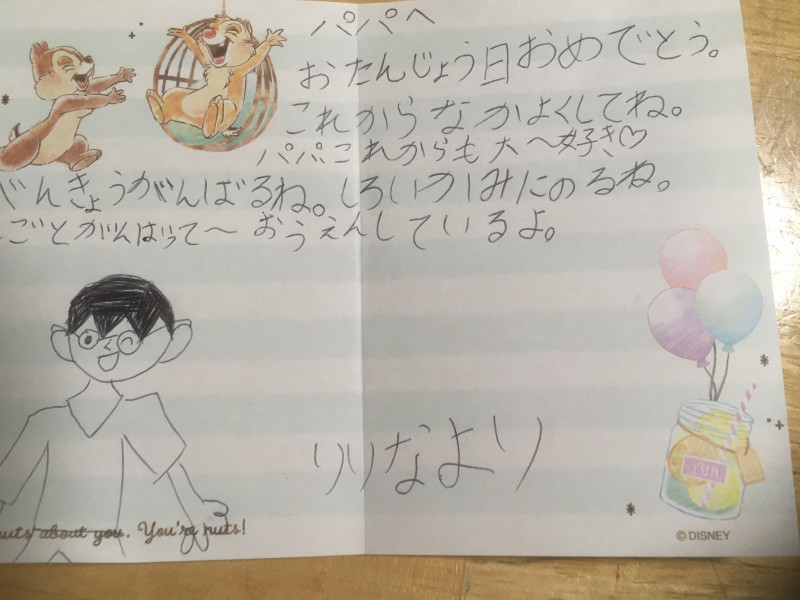 パパへ
おたんじょう日おめでとう。
これからなかよくしてね。
パパこれからも大〜好き♡
べんきょうがんばるね。しろいかみにのるね。
ごとがんばって〜おうえんしているよ。
りりなより
YUM
nuts about you. You're nuts!
©DISNEY